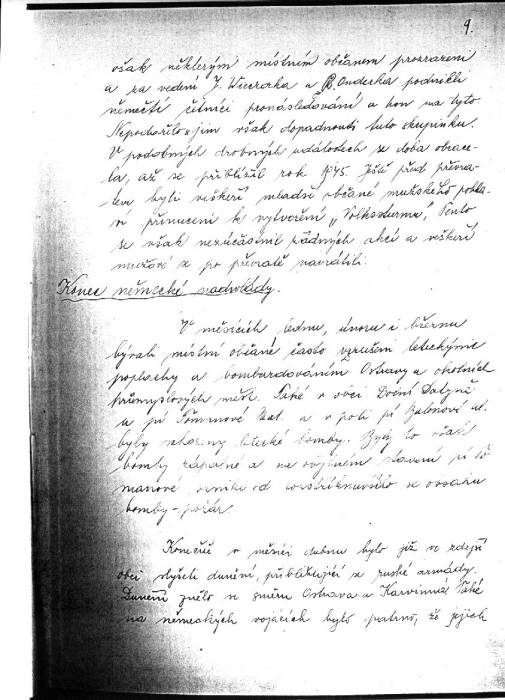 9.
však některým místním občanem prozrazeni
a za vedení J. Wieczorka a B. Onderka podnikli
němečtí četníci pronásledování a hon na tyto.
Nepodařilo jim však dopadnouti tuto skupinku.
V podobných drobných událostech se doba obrace-
la, až se přiblížil rok 1945. Ještě před převra-
tem byli veškeří mladší občané mužského pohla-
ví přinuceni k vytvoření „Volksturmu", Tento
se však nezúčasnil žádných akcí a veškeří
mužové se po převratě navrátili.
Konec německé nadvlády.
V měsících lednu, únoru i březnu
bývali místní občané často vzrušeni leteckými
poplachy a bombardováním Ostravy a okolních
průmyslových měst. Také v obci Dolní Datyně
u pí Tomanové a v poli pí
byly shozeny letecké bomby. Byly to však
bomby zápalné a na obytném stavení pí To-
manové vznikl od se obsahu
bomby - požár.
Konečně v měsíci dubnu bylo již ve zdejší
obci slyšeti dunění, přibližující se ruské armády.
Dunění znělo ve směru Ostrava a Karvinná. Také
na německých vojácích bylo patrno, že jejich